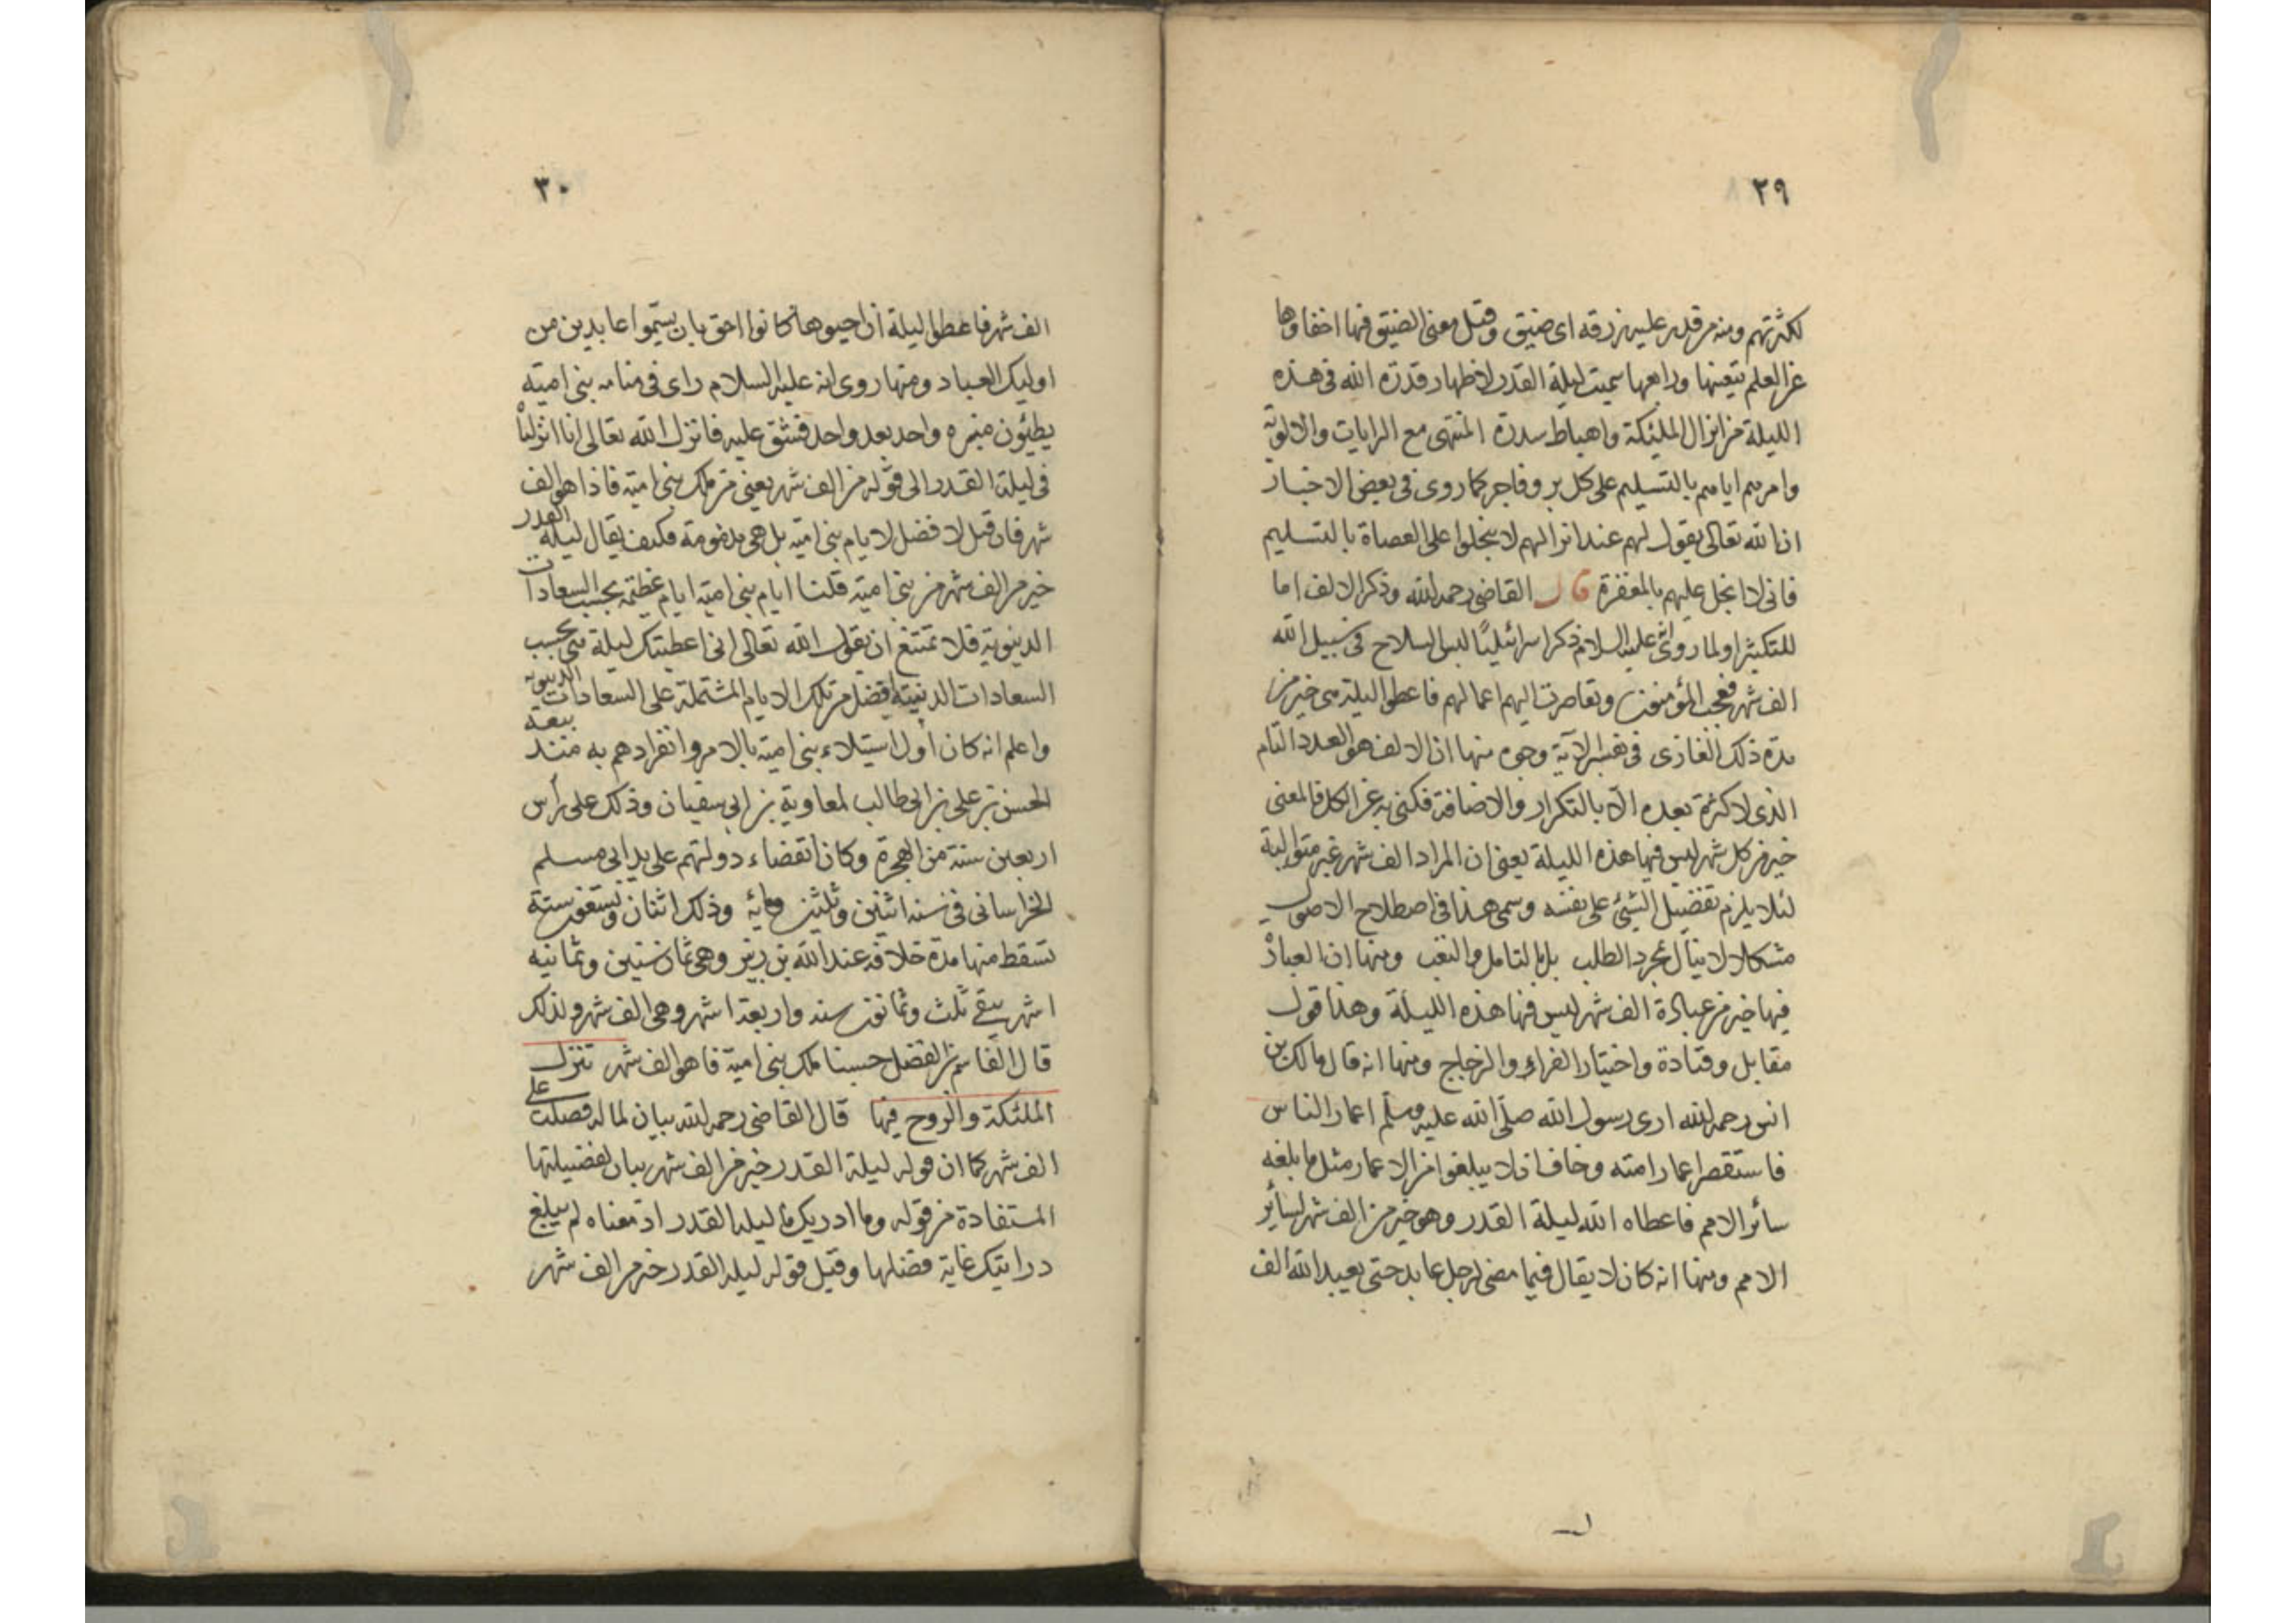 ٢٩
لكثرتهم ومنه من قدر عليه رزقه اى ضيق وقيل معنى الضيق فيها اخفاؤها
عن العلم بتعينها ورابعها سميت ليلة القدر لاظهار قدرة الله فى هذه
الليلة من انزال الملئكة واهباط سدرة المنتهى مع الرايات والالوية
وامرهم اياهم بالتسليم على كل بر وفاجر كما روى فى بعض الاخبار
ان الله تعالى يقول لهم عند انزالهم لا تبخلوا على العصاة بالتسليم
فانى لا ابخل عليهم بالمغفرة قال القاضى رحمه الله وذكر الالف اما
للتكثير او لما روى انه عليه السلام ذكر اسرائيليًا لبس السلاح فى سبيل الله
الف شهر فعجب المؤمنون وتقاصرت اليهم اعمالهم فاعطوا ليلة هى خير من
مدة ذلك الغازى فى تفسير الآية وجوه منها ان الالف هو العدد التام
الذى لا كثرة بعده الا بالتكرار والاضافة فكنى به عن الكل فالمعنى
خير من كل شهر ليس فيها هذه الليلة يعنى ان المراد الف شهر غير متوالية
لئلا يلزم تفضيل الشئ على نفسه وسمى هذا فى اصطلاح الاصول
مشكلا لا ينال بمجرد الطلب بل بالتامل والتعب ومنها ان العبادة
فيها خير من عبادة الف شهر ليس فيها هذه الليلة وهذا قول
مقاتل وقتادة واختيار الفراء والزجاج ومنها انه قال مالك بن
انس رحمه الله ارى رسول الله صلى الله عليه وسلم اعمار الناس
فاستقصر اعمار امته وخاف ان لا يبلغوا من الاعمار مثل ما بلغه
سائر الامم فاعطاه الله ليلة القدر وهو خير من الف شهر لسائر
الامم ومنها انه كان لا يقال فيما مضى لرجل عابد حتى يعبد الله الف
٣٠
الف شهر فاعطوا ليلة ان احيوها كانوا احق بان يسموا عابدين من
اوليك العباد ومنها روى انه عليه السلام راى فى منامه بنى امية
يطئون منبره واحد بعد واحد فشق عليه فانزل الله تعالى انا انزلناه
فى ليلة القدر الى قوله من الف شهر يعنى من ملك بنى امية فاذا هو الف
شهر فان قيل لا فضل لايام بنى امية بل هى مذمومة فكيف يقال ليلة القدر
خير من الف شهر من بنى امية قلنا ايام بنى امية ايام عظيمة بحسب السعادات
الدنيوية فلا تمتنع ان يقول الله تعالى انى اعطيتك ليلة هى بحسب
السعادات الدينية افضل من تلك الايام المشتملة على السعادات الدنيوية
واعلم انه كان اول استيلاء بنى امية بالامر وانفرادهم به منذ بيعة
الحسن بن على بن ابى طالب لمعاوية بن ابى سفيان وذلك على رأس
اربعين سنة من الهجرة وكان انقضاء دولتهم على يد ابى مسلم
الخراسانى فى سنه اثنين وثلثين ومائه وذلك اثنان وتسعون سنة
تسقط منها مدة خلافة عند الله بن زبير وهى ثمان سنين وثمانيه
اشهر يبقى ثلث وثمانون سنه واربعة اشهر وهى الف شهر ولذلك
قال القاسم بن الفضل حسبنا ملك بنى امية فاهو الف شهر تنزل
الملئكة والروح فيها قال القاضى رحمه الله بيان لما له فضلت على
الف شهر كما ان قوله ليلة القدر خير من الف شهر بيان لفضيلتها
المستفادة من قوله وما ادريك ما ليله القدر اذ معناه لم يبلغ
درايتك غاية فضلها وقيل قوله ليله القدر خير من الف شهر